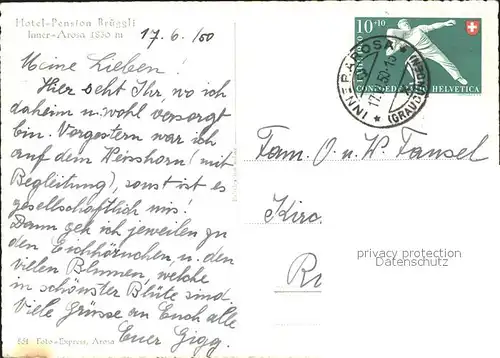 Hotel-Pension Brüggli
Inner-Arosa 1850 m
17.6./50
Meine Lieben!
Hier seht Ihr, wo ich
daheim u. wohl versorgt
bin. Vorgestern war ich
auf dem Weisshorn (mit
Begleitung), sonst ist es
gesellschaftlich mis!
Dann geh ich jeweilen zu
den Eichhörnchen u. den
vielen Blumen, welche
in schönster Blüte sind.
Viele Grüsse an Euch alle
Euer Gigg.
851 Foto-Express, Arosa
10+10
CONFOEDERATIO HELVETICA
INNERAROSA
17.
50-15
Fam. O. u. W. Fansel
Kirc
Ri
privacy protection
Datenschutz